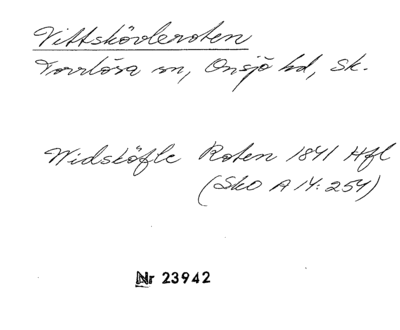 Vittskövleroten
Torrlösa sn, Onsjö hd, Sk.
Widsköfle Roten 1841 Hfl
(SkO A 14:254)
Nr 23942